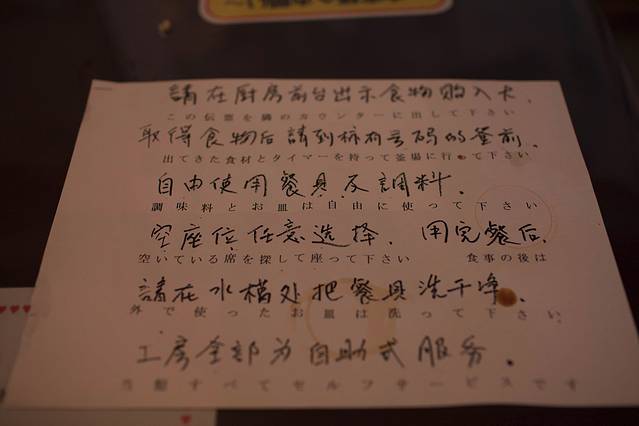 請在厨房前台出示食物购入卡.
この伝票を隣のカウンターに出して下さい
取得食物后請到标有号码的釜前.
出てきた食材とタイマーを持って釜場に行って下さい
自由使用餐具及調料.
調味料とお皿は自由に使って下さい
空座位任意选择. 用完餐后.
空いている席を探して座って下さい 食事の後は
請在水槽处把餐具洗干净.
外で使ったお皿は洗って下さい
工房全部为自助式服务.
当館すべてセルフサービスです